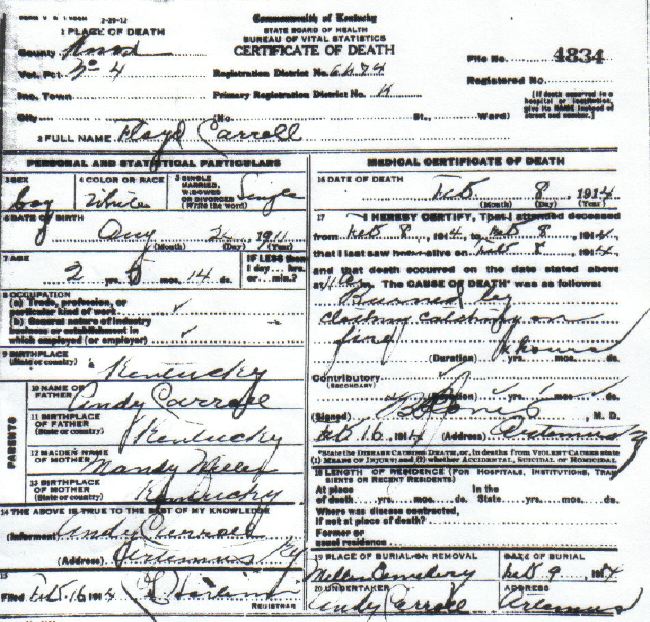 2-29-12
Commonwealth of Kentucky
1 PLACE OF DEATH
STATE BOARD OF HEALTH
BUREAU OF VITAL STATISTICS
CERTIFICATE OF DEATH
County Knox
File No. 4834
Vot. Pct. No 4
Registration District No. 6474
Registered No.
Inc. Town
Primary Registration District No.
[If death occurred in a hospital or institution, give its NAME instead of street and number.]
City (No. St., Ward)
2 FULL NAME Floyd Carroll
PERSONAL AND STATISTICAL PARTICULARS
3 SEX boy
4 COLOR OR RACE White
5 SINGLE, MARRIED, WIDOWED OR DIVORCED (Write the word) Single
6 DATE OF BIRTH Aug 1911
(Month) (Day) (Year)
7 AGE
2 yrs. 5 mos. 14 ds.
IF LESS than 1 day... hrs. or... min.?
8 OCCUPATION
(a) Trade, profession, or particular kind of work ✓
(b) General nature of industry business or establishment in which employed (or employer) ✓
9 BIRTHPLACE (State or country) Kentucky
PARENTS
10 NAME OF FATHER Andy Carroll
11 BIRTHPLACE OF FATHER (State or country) Kentucky
12 MAIDEN NAME OF MOTHER Nandy
13 BIRTHPLACE OF MOTHER (State or country) Kentucky
14 THE ABOVE IS TRUE TO THE BEST OF MY KNOWLEDGE
(Informant) Andy Carroll
(Address) Artemus Ky
15
Filed Feb. 16 1914
REGISTRAR
MEDICAL CERTIFICATE OF DEATH
16 DATE OF DEATH Feb 8, 1914
(Month) (Day) (Year)
17 I HEREBY CERTIFY, That I attended deceased
from Feb 8, 1914, to Feb 8, 1914
that I last saw him alive on Feb 8, 1914,
and that death occurred on the date stated above
at m. The CAUSE OF DEATH* was as follows:
Burned by
clothing on
fire
(Duration) yrs. mos. ds.
hours
Contributory ✓
(SECONDARY)
(Duration) yrs. mos. ds.
(Signed) M. D.
Feb 16, 1914 (Address) Artemus Ky
*State the DISEASE CAUSING DEATH, or, in deaths from VIOLENT CAUSES state (1) MEANS OF INJURY; and (2) whether ACCIDENTAL, SUICIDAL OR HOMICIDAL.
18 LENGTH OF RESIDENCE (FOR HOSPITALS, INSTITUTIONS, TRANSIENTS OR RECENT RESIDENTS)
At place of death yrs. mos. ds. In the State yrs. mos. ds.
Where was disease contracted, if not at place of death?
Former or usual residence
19 PLACE OF BURIAL OR REMOVAL Cemetery
DATE OF BURIAL Feb 9, 1914
20 UNDERTAKER Andy Carroll
ADDRESS Artemus